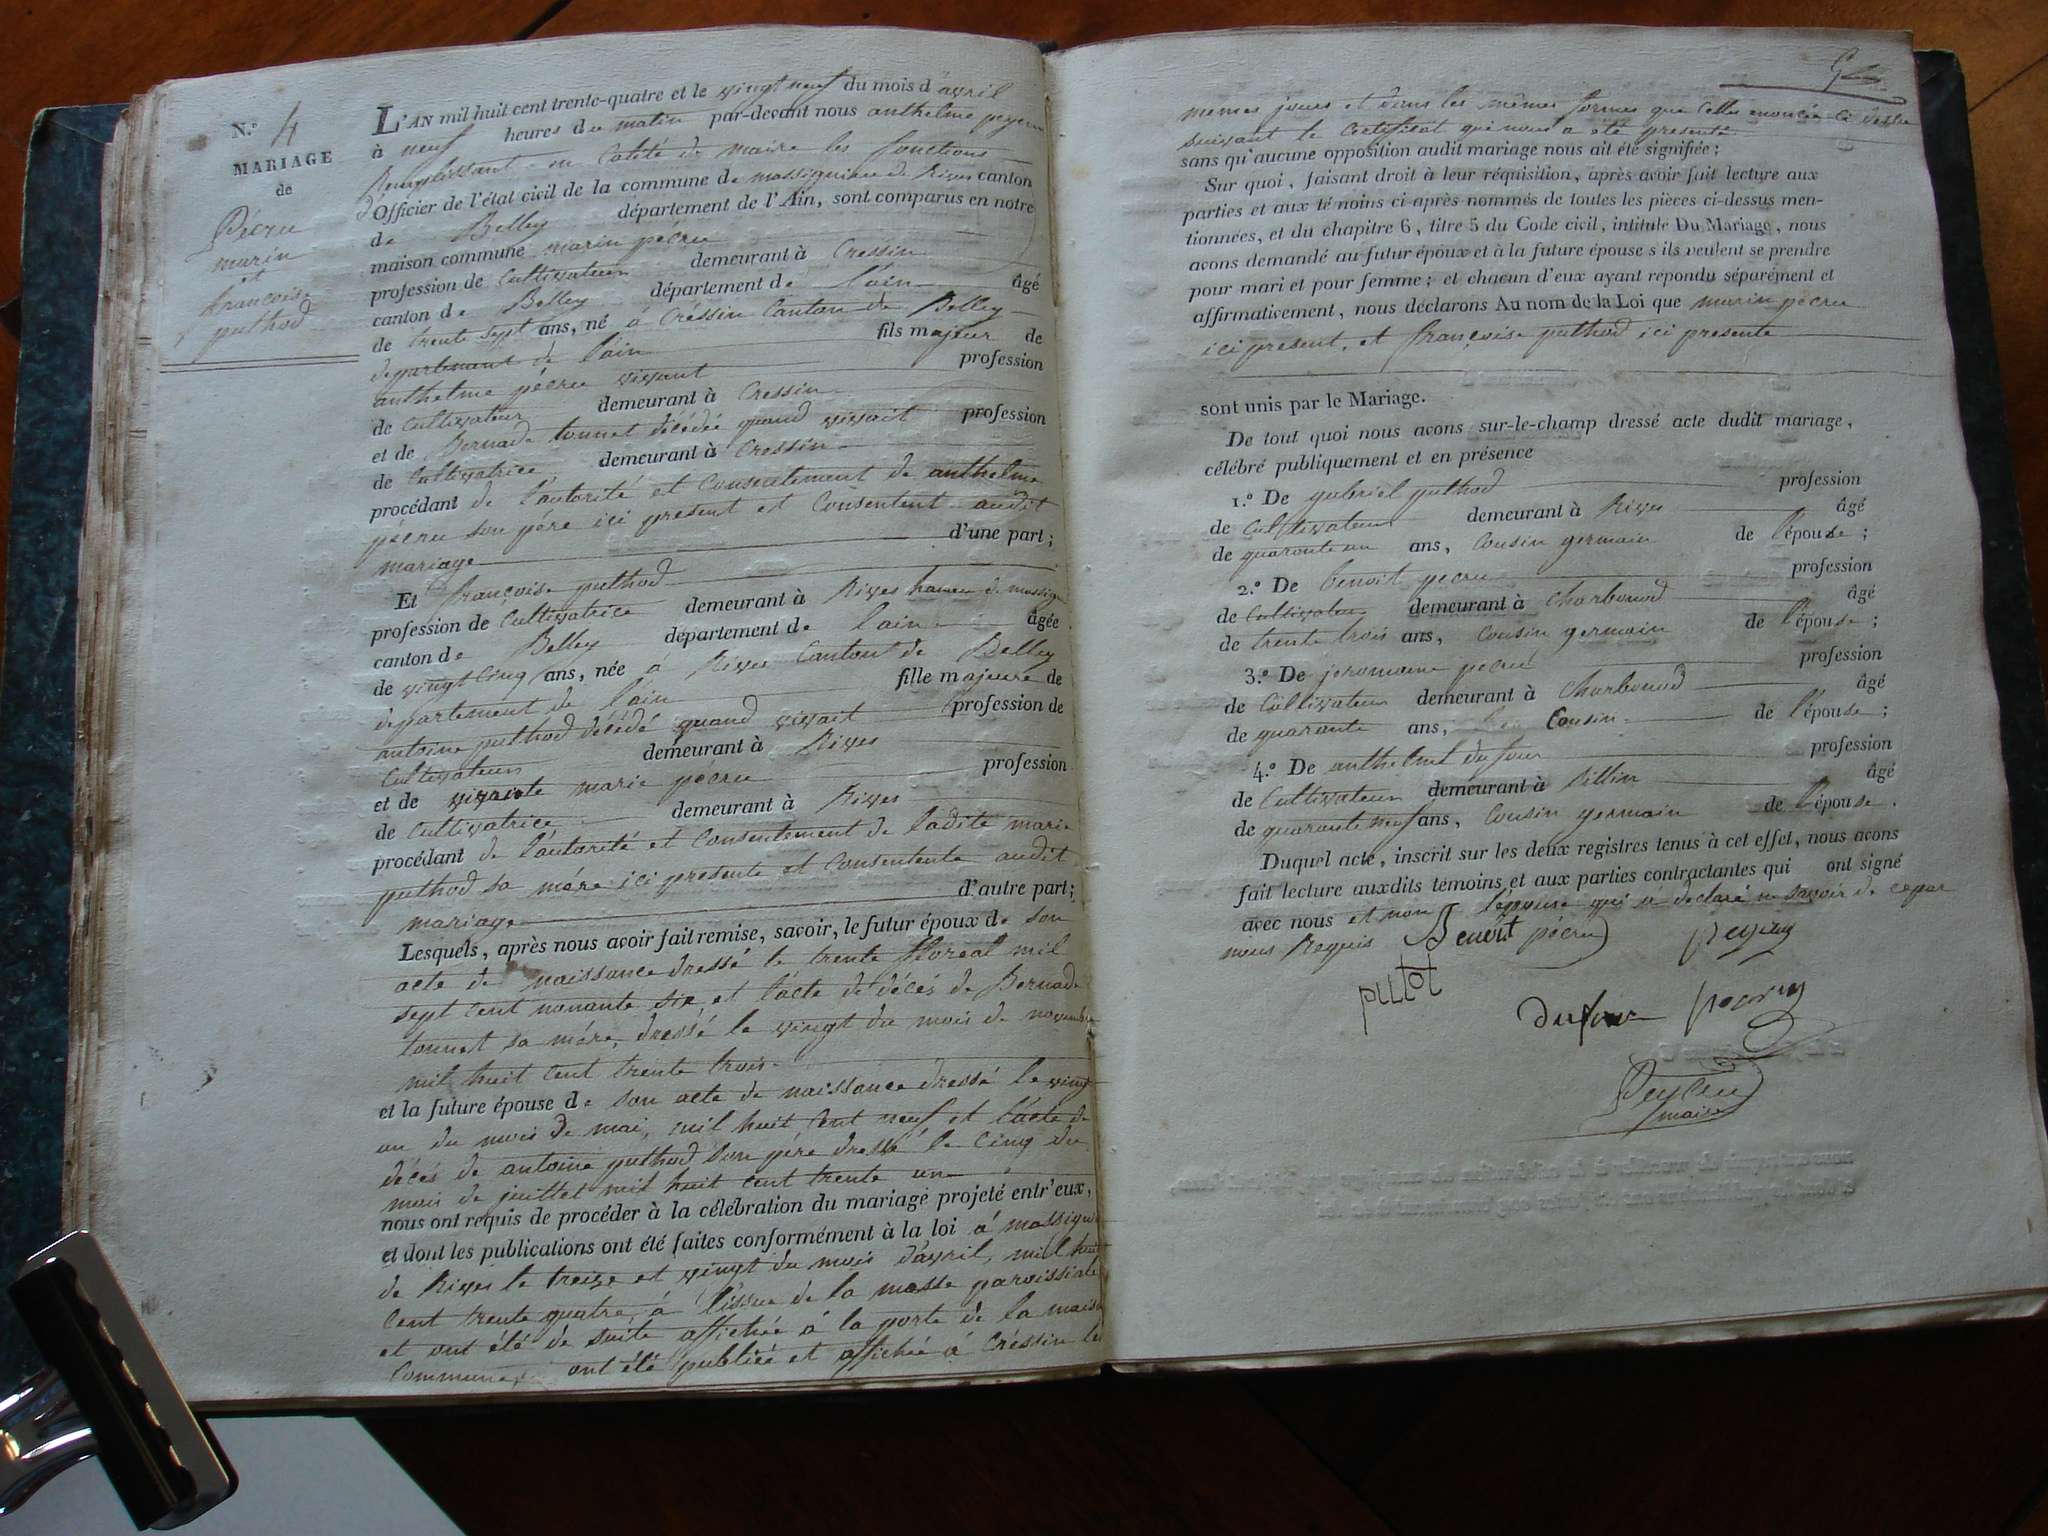 N.o 4
MARIAGE
de
Pécru
marin
et
françoise
puthod
L'AN mil huit cent trente-quatre et le vingt neuf du mois d'avril
à neuf heures du matin par-devant nous anthelme peyeru
Remplissant en Calité de maire les fonctions
d'Officier de l'état civil de la commune de massignieu de Rives canton
de Belley département de l'Ain, sont comparus en notre
maison commune marin pécru
profession de Cultivateur demeurant à Cressin
canton de Belley département de l'ain âgé
de trente sept ans, né à Cressin Canton de Belley
departement de l'ain fils majeur de
anthelme pécru vivant profession
de Cultivateur demeurant à Cressin
et de Bernade tonnet décédée quand vivait profession
de Cultivatrice demeurant à Cressin
procédant de l'autorité et Consentement de anthelme
pécru son père ici present et Consentent audit
mariage d'une part;
Et françoise puthod
profession de Cultivatrice demeurant à Rives hameau de massig
canton de Belley département de l'ain âgée
de vingt Cinq ans, née à Rives Canton de Belley
departement de l'ain fille majeure de
antoine puthod décédé quand vivait profession de
Cultivateur demeurant à Rives
et de vivante marie pécru profession
de Cultivatrice demeurant à Rives
procédant de l'autorité et Consentement de ladite marie
puthod sa mére ici presente et Consentente audit
mariage d'autre part;
Lesquels, après nous avoir fait remise, savoir, le futur époux de son
acte de naissance dressé le trente floreal mil
sept cent nonante six et l'acte de décés de Bernade
tonnet sa mére, dressé le vingt du mois de novembre
mil huit cent trente trois.
et la future épouse de son acte de naissance dressé le vingt
un du mois de mai, mil huit Cent neuf et l'acte de
décés de antoine puthod son pére dressé le Cinq du
mois de juillet mil huit cent trente un
nous ont requis de procéder à la célébration du mariage projeté entr'eux,
et dont les publications ont été faites conformément à la loi à massignieu
de Rives le treize et vingt du mois d'avril, mil huit
Cent trente quatre, à l'issue de la messe paroissiale
et ont été de suite affichée à la porte de la maison
Commune, ont été publiée et affichée à Créssin les
memes jours et dans les mêmes formes que celles enoncée ci dessu
suivant le Certificat qui nous a été presenté
sans qu'aucune opposition audit mariage nous ait été signifiée;
Sur quoi, faisant droit à leur réquisition, après avoir fait lecture aux
parties et aux témoins ci-après nommés de toutes les pièces ci-dessus men-
tionnées, et du chapitre 6, titre 5 du Code civil, intitulé Du Mariage, nous
avons demandé au futur époux et à la future épouse s'ils veulent se prendre
pour mari et pour femme; et chacun d'eux ayant répondu séparément et
affirmativement, nous déclarons Au nom de la Loi que marin pécru
ici present, et françoise puthod ici presente
sont unis par le Mariage.
De tout quoi nous avons sur-le-champ dressé acte dudit mariage,
célébré publiquement et en présence
1.o De gabriel puthod profession
de Cultivateur demeurant à Rives âgé
de quarante un ans, Cousin germain de l'épouse;
2.o De benoit pecru profession
de Cultivateur demeurant à Charbonod âgé
de trente trois ans, cousin germain de l'épouse;
3.o De jeromaine pecru profession
de Cultivateur demeurant à Charbonod âgé
de quarante ans, Cousin de l'épouse;
4.o De anthelme dufour profession
de Cultivateur demeurant à Sillin âgé
de quarante neuf ans, Cousin germain de l'épouse.
Duquel acte, inscrit sur les deux registres tenus à cet effet, nous avons
fait lecture auxdits témoins et aux parties contractantes qui ont signé
avec nous et non l'épouse qui a déclaré ne savoir de ce par
nous Requis Benoit pécru
putot
dufour
maire